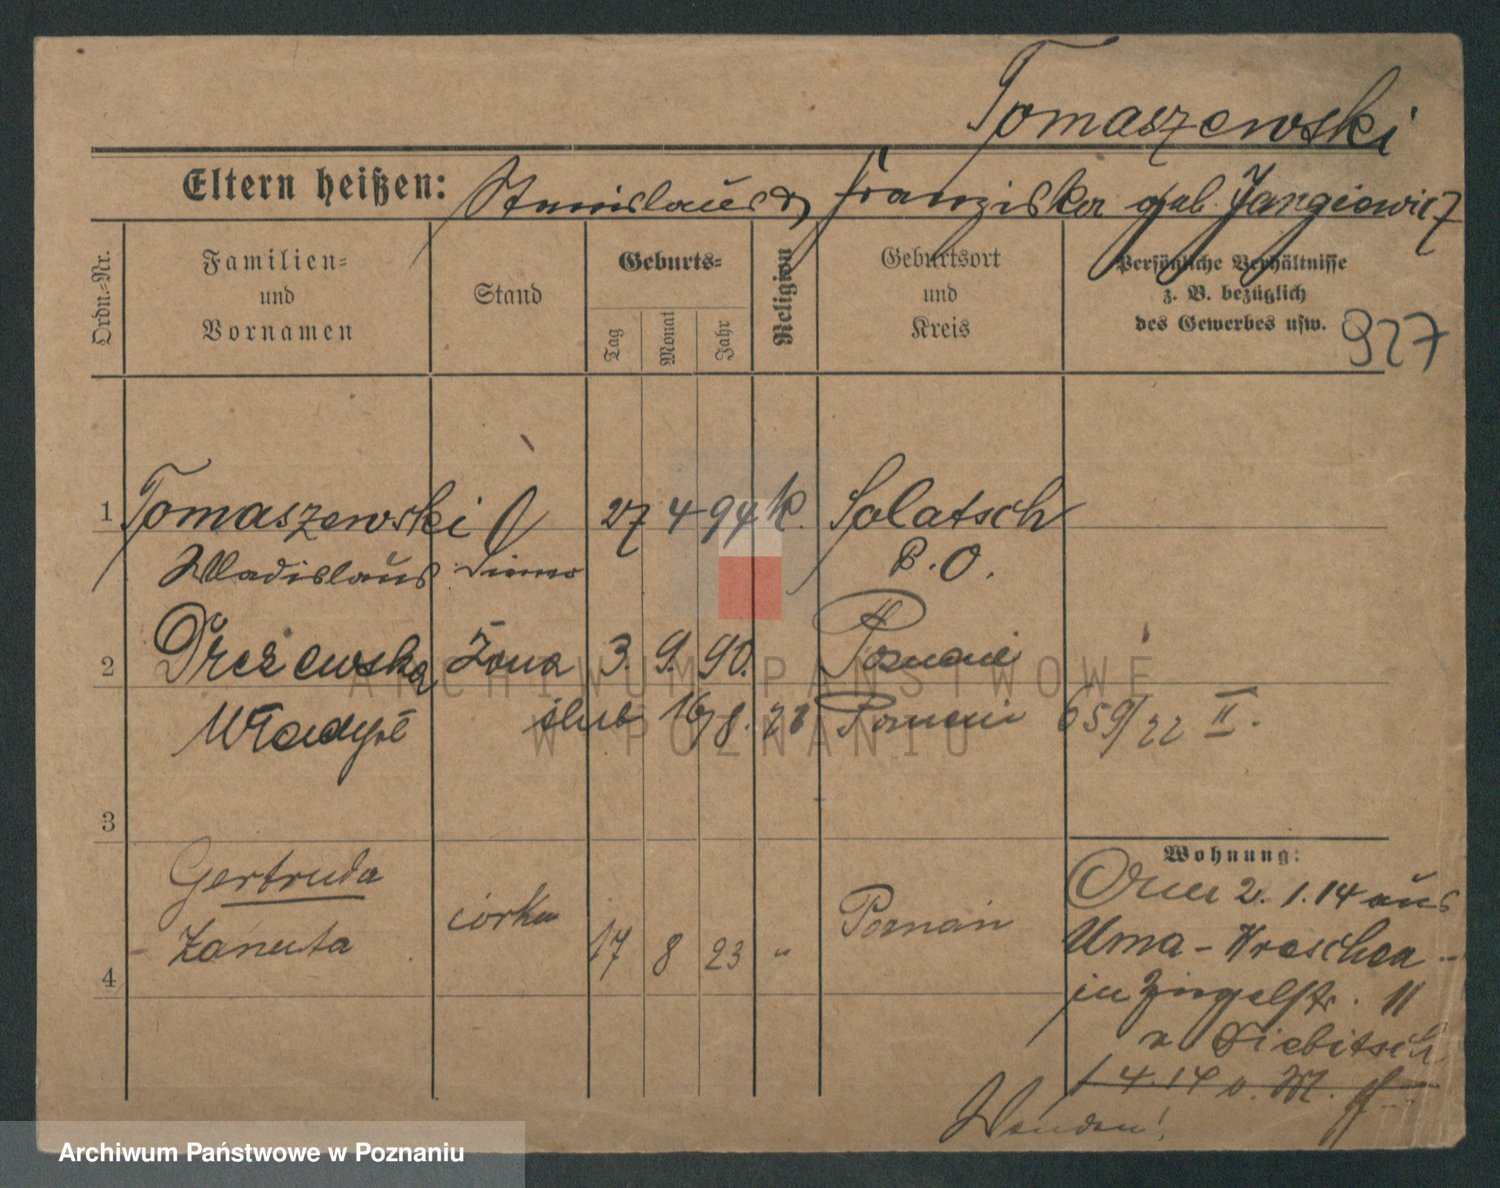 Tomaszewski
Eltern heißen: Stanislaus & Franziska geb. Jangiewicz
Ordn.-Nr.
Familien- und Vornamen
Stand
Geburts-
Tag
Monat
Jahr
Religion
Geburtsort und Kreis
Persönliche Verhältnisse
z. B. bezüglich
des Gewerbes usw.
927
1 Tomaszewski 27 4 94 k. Solatsch
Wladislaus P. O.
2 Drezewska Żona 3. 9. 90. Poznań
Władysł ślub 16/8. 22 Poznań 659/22 II.
3
Gertruda
Żaneta córka 17 8 23 " Poznań
4
Wohnung:
2. 1. 14 aus
Uma - Wreschen -
in 11
v. Siebitsch
1 4. 14 v. M.
Wenden!
ARCHIWUM PAŃSTWOWE
W POZNANIU
Archiwum Państwowe w Poznaniu